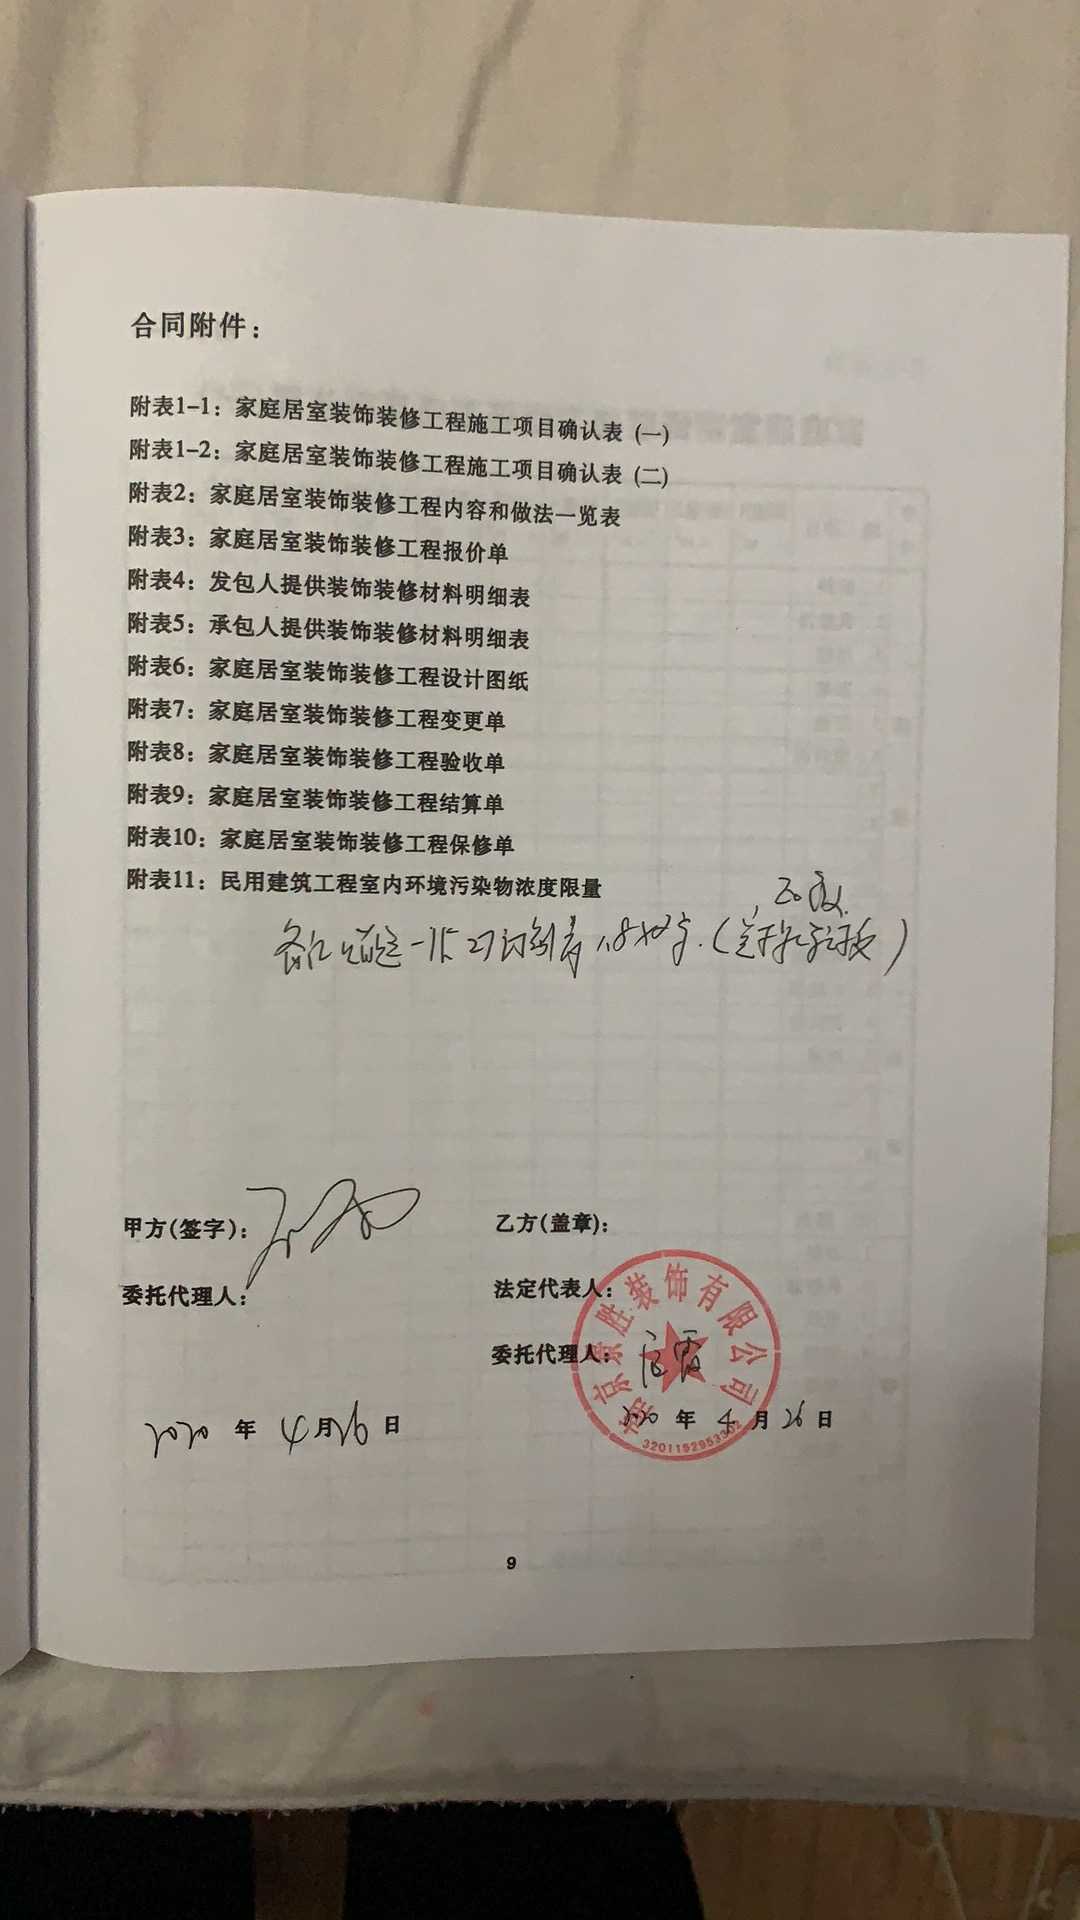 合同附件：
附表1-1：家庭居室装饰装修工程施工项目确认表 (一)
附表1-2：家庭居室装饰装修工程施工项目确认表 (二)
附表2：家庭居室装饰装修工程内容和做法一览表
附表3：家庭居室装饰装修工程报价单
附表4：发包人提供装饰装修材料明细表
附表5：承包人提供装饰装修材料明细表
附表6：家庭居室装饰装修工程设计图纸
附表7：家庭居室装饰装修工程变更单
附表8：家庭居室装饰装修工程验收单
附表9：家庭居室装饰装修工程结算单
附表10：家庭居室装饰装修工程保修单
附表11：民用建筑工程室内环境污染物浓度限量
甲方(签字)：
乙方(盖章)：
委托代理人：
法定代表人：
委托代理人：
装饰有限公司
2020 年 4 月 26 日
2020 年 4 月 26 日
9